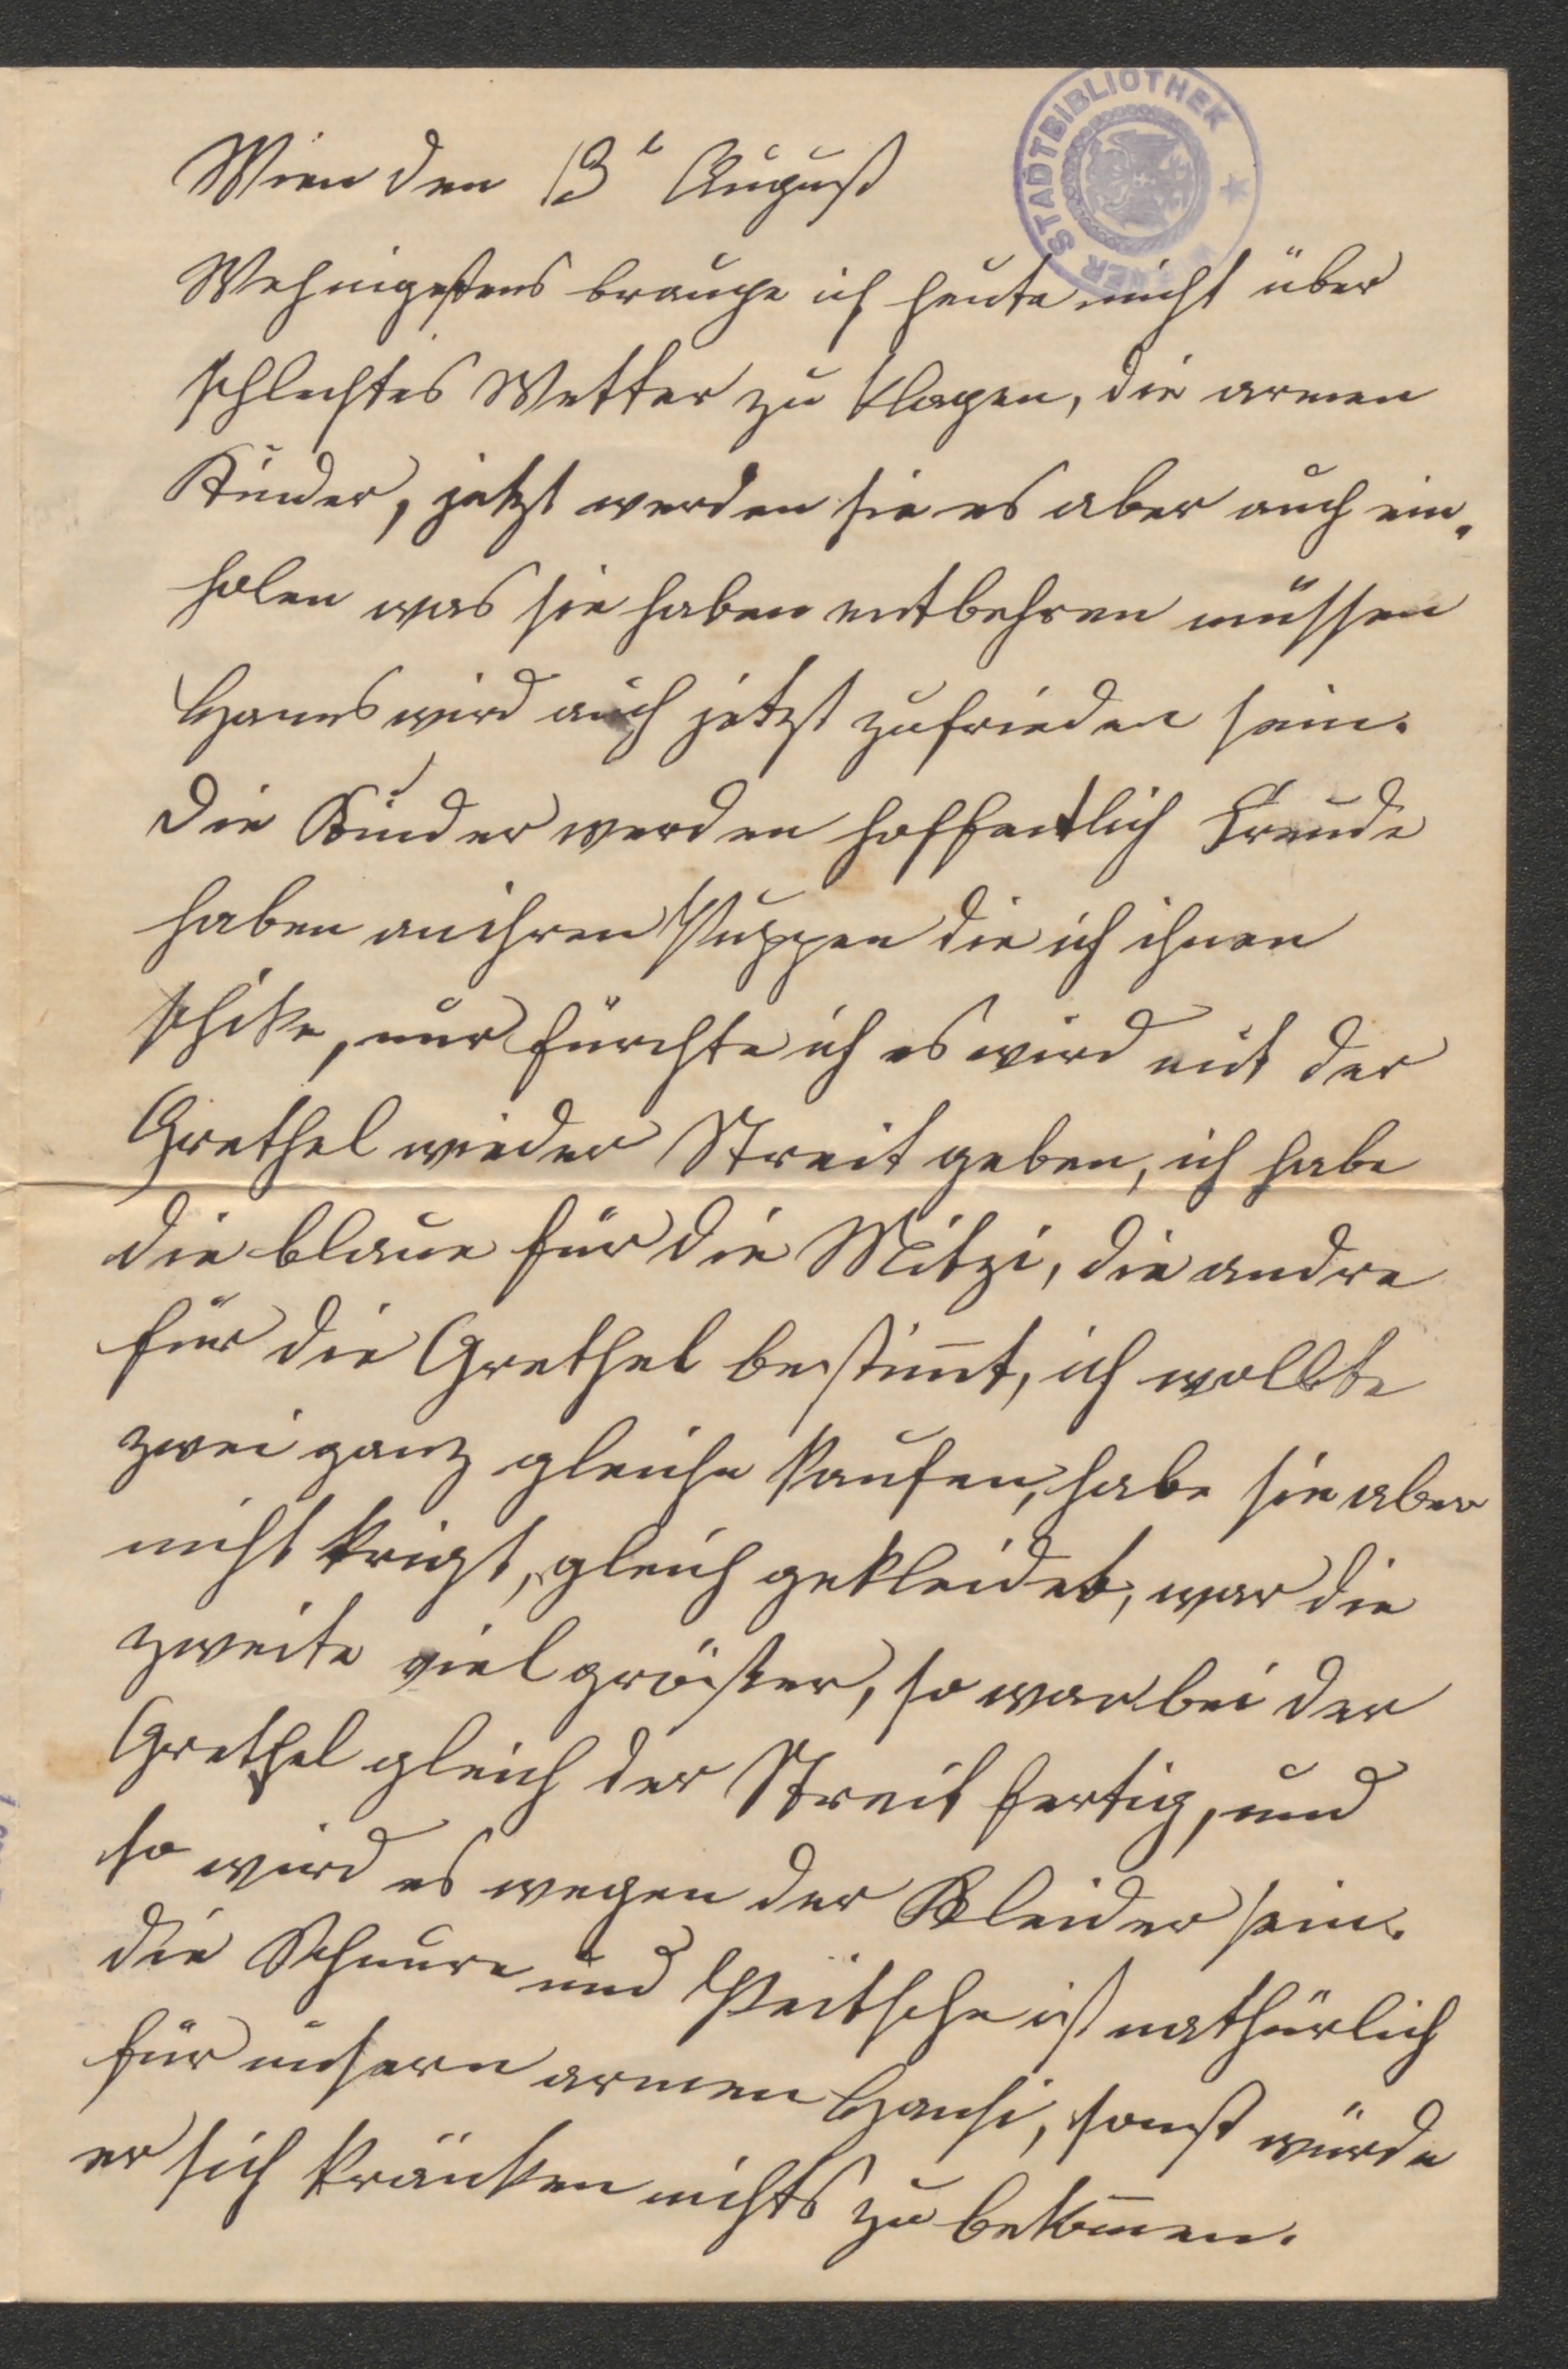 Wien den 13t August
WIENER STADTBIBLIOTHEK
Wehnigstens brauche ich heute nicht über
schlechtes Wetter zu klagen, die armen
Kinder, jetzt werden sie es aber auch ein„
holen was sie haben entbehren müssen
Hanns wird auch jetzt zufrieden sein.
Die Kinder werden hoffentlich Freude
haben an ihren Puppen die ich ihnen
schike, nur fürchte ich es wird mit der
Grethel wieder Streit geben, ich habe
die blaue für die Mitzi, die andre
für die Grethel bestim̅t, ich wollte
zwei ganz gleiche kaufen, habe sie aber
nicht krigt, gleich gekleidet, war die
zweite viel größer, so war bei der
Grethel gleich der Streit fertig, und
so wird es wegen der Kleider sein.
Die Schnure und Peitsche ist nathürlich
für unsern armen Hansi, sonst würde
er sich kränken nichts zu bekom̅en.